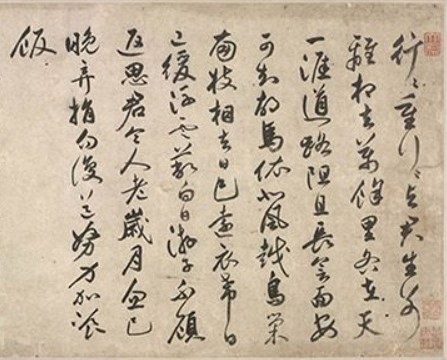 行〻重行〻與君生別
離相去萬餘里各在天
一涯道路阻且長會面安
可知胡馬依北風越鳥巢
南枝相去日已遠衣帶日
已緩浮雲蔽白日游子不顧
返思君令人老歲月忽已
晚弃捐勿復道努力加飡
飯